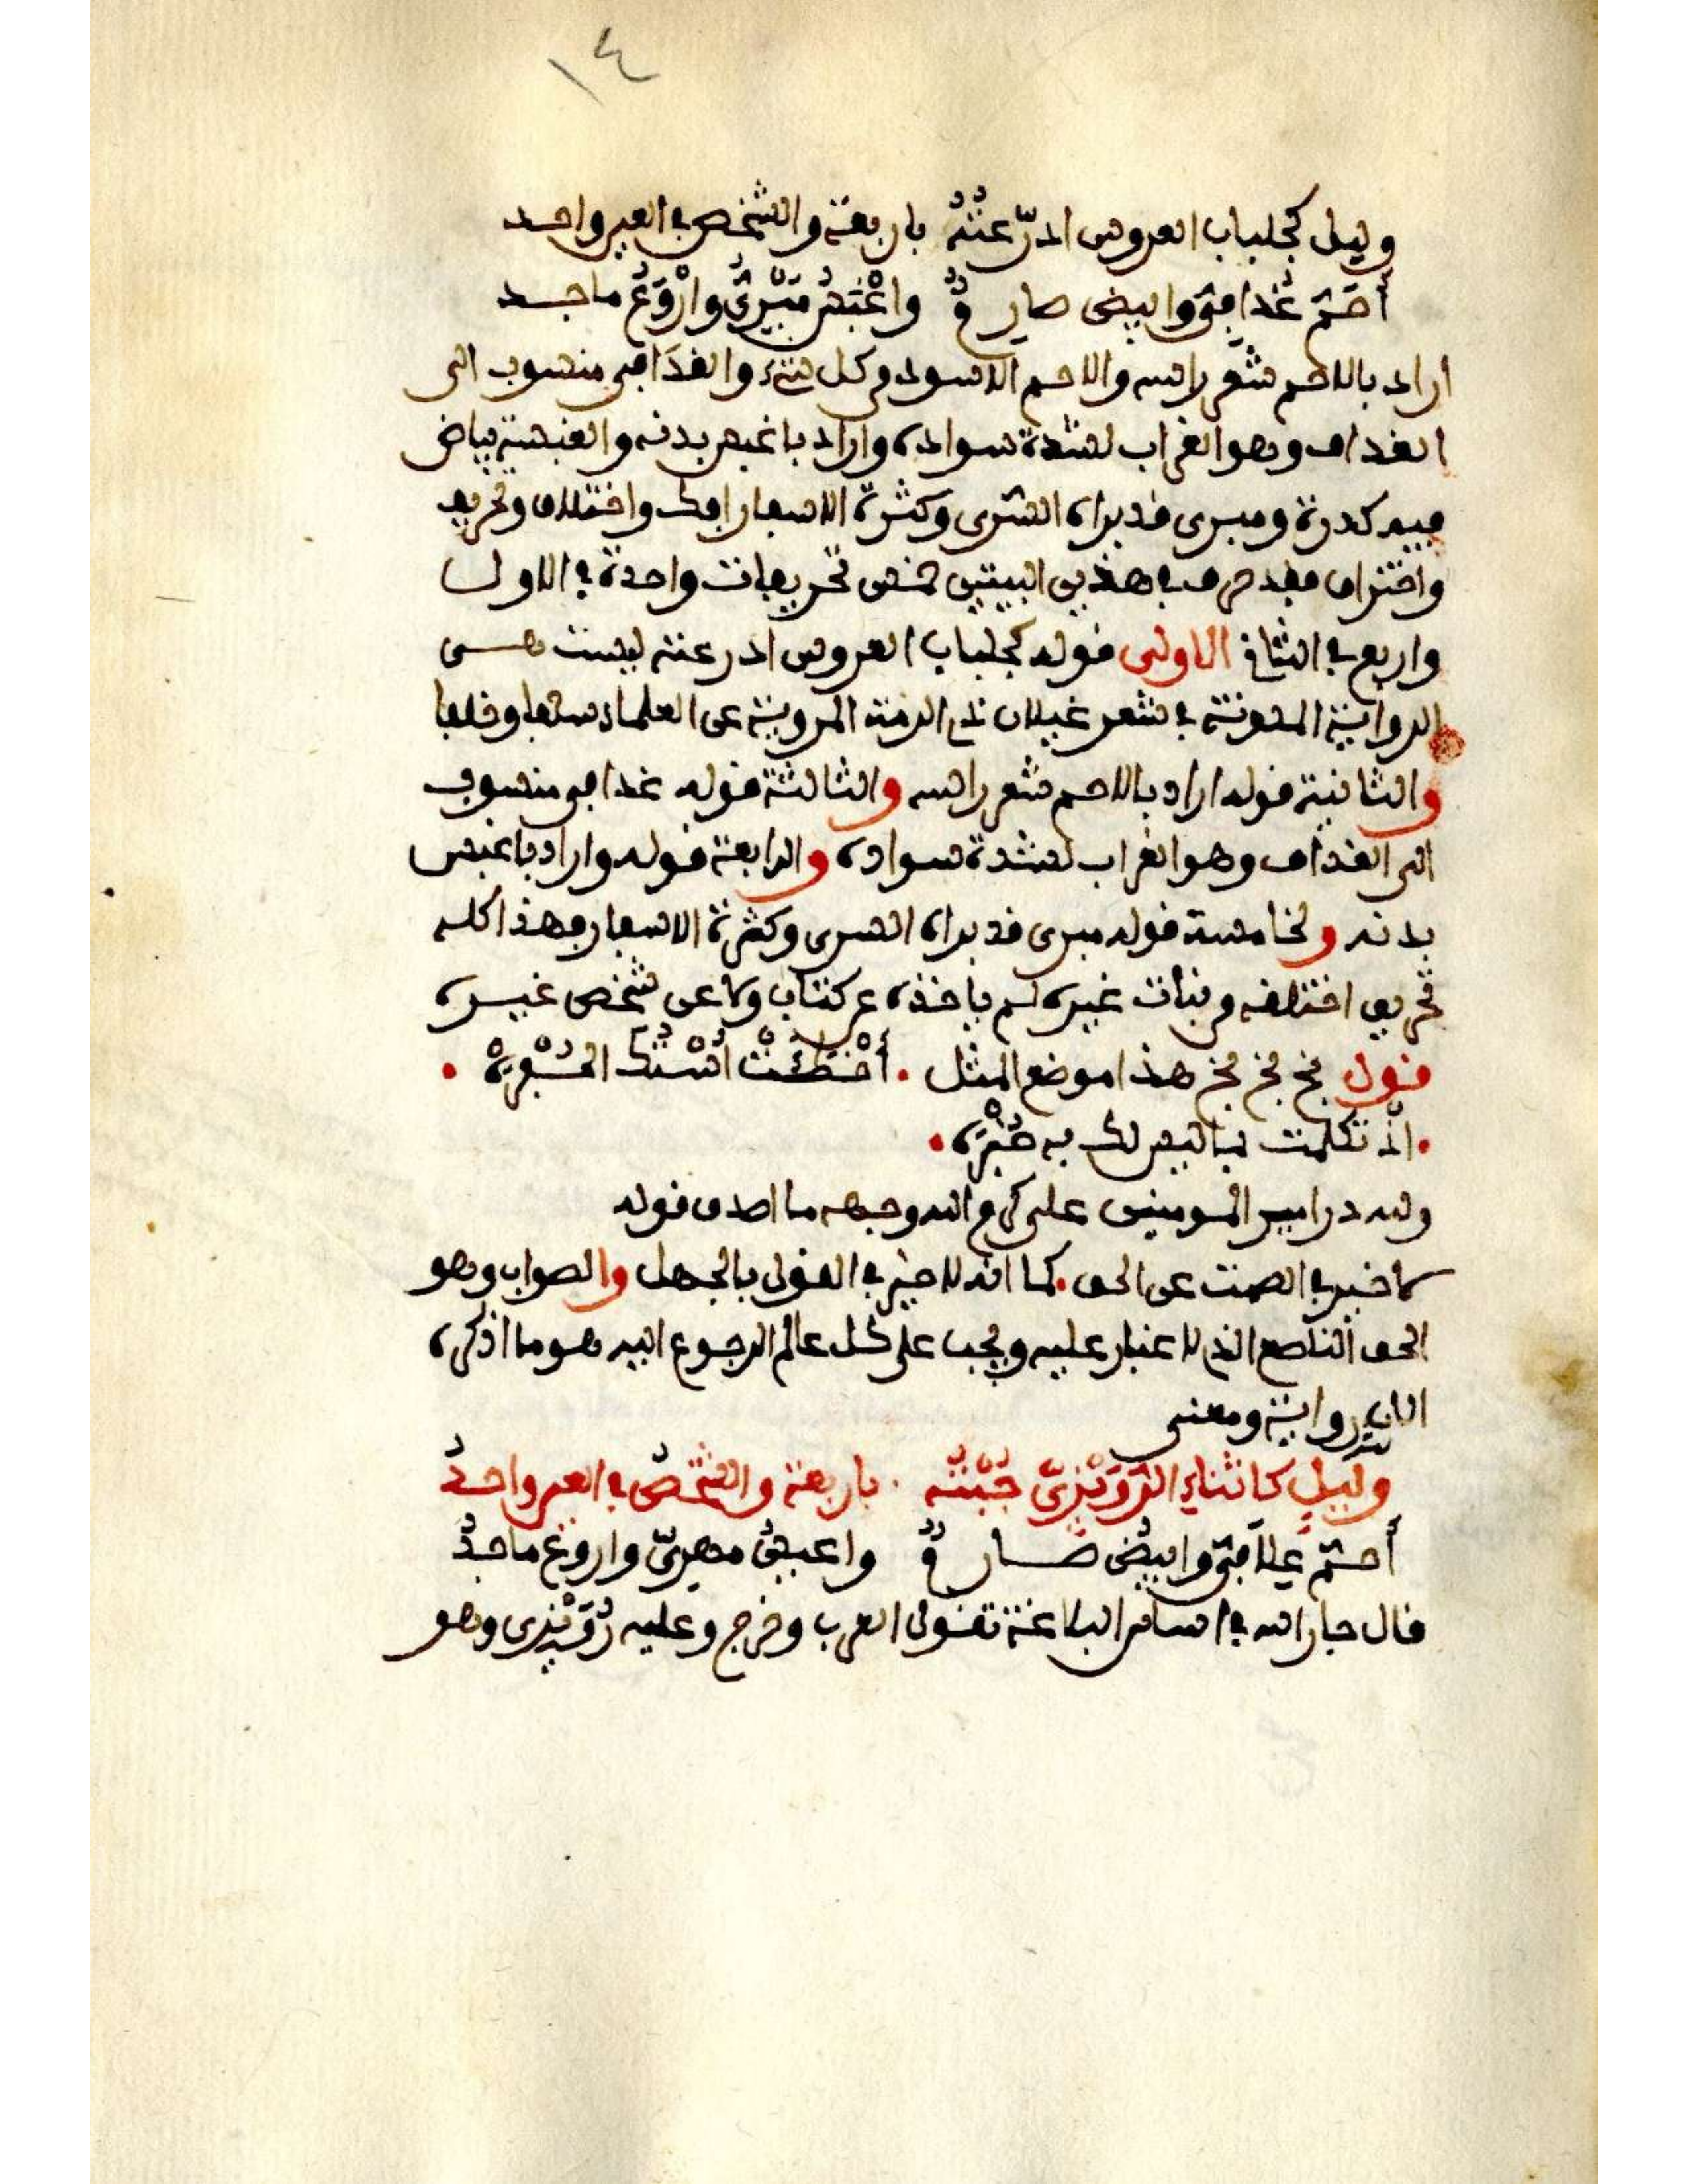 ١٤
وليل كجلباب العروس ادّرعتُهُ باربعة والشخص في العين واحد
أحَمّ غُدافيّ وابيض صارمٌ واعْبَسُ مَبْرِيٌّ وارْوَعُ ماجد
اراد بالاحم شعر راسه والاحم الاسود من كل شيء والغدَافي منسوب الى
الغداف وهو الغراب لشدة سواده واراد باغبس بدنه والغبسة بياض
فيه كدرة ومبرى قد براه السرى وكثرة الاسفار افك واختلاق وتحريف
وافتراء فقد حرف في هذين البيتين خمس تحريفات واحدة في الاول
واربع في الثاني الاولى قوله كجلباب العروس ادرعته ليست هي
الرواية المدونة في شعر غيلان ذي الرمة المروية عن العلماء سلفا وخلفا
والثانية قوله اراد بالاحم شعر راسه والثالثة قوله غدافي منسوب
الى الغداف وهو الغراب لشدة سواده والرابعة قوله واراد باغبس
بدنه ولخامسة قوله مبرى قد براه السرى وكثرة الاسفار وهذا كله
تحريف اختلقه من بنات غيره لم ياخذه عن كتاب ولا عن شخص غيره
قول بخ بخ بخ هذا موضع المثل . أخْطَئَتْ اسْتُكَ الحُفْرَهْ .
. اذ تكلمت بما ليس لك به خُبْرَه .
ولله در امير المومنين علي كرم الله وجهه ما اصدق قوله
لا خير في الصمت عن الحق . كما انه لا خير في القول بالجهل والصواب وهو
الحق الناصع الذي لا غبار عليه ويجب على كل عالم الرجوع اليه هو ما اذكره
الان رواية ومعنى
وليلٍ كاثناءِ الرُّوَيْزِيّ جُبْتُه . باربعة والشخصُ في العين واحدُ
أحَمّ عِلَافيّ وابيضُ صارمٌ واعيسُ مهريّ واروعُ ماجدُ
قال جار الله في اساس البلاغة تقول العرب وخرج وعليه رُوَيْزِي وهو